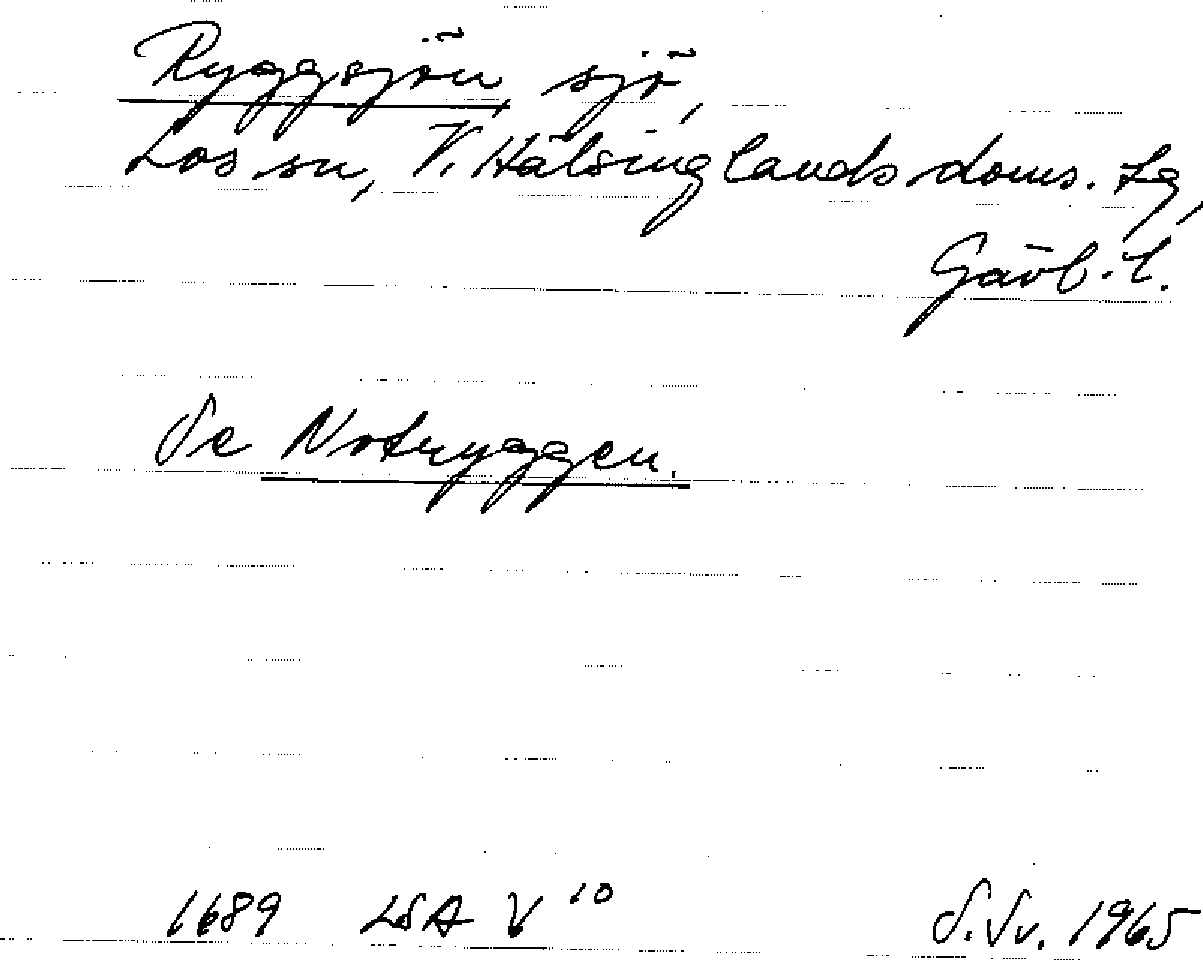 Ryggsjön sjö,
Los sn, V. Hälsinglands doms. tg,
Gävl. l.
Se Notryggen.
1689 LSA V 10 S. Sv. 1965